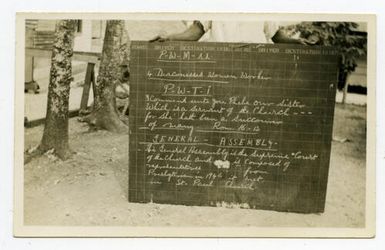 P-W-M-11
4 Deaconesses Women Worker
P-W-T-I
I Commend unto you Phebe our Sister
Which is a Servant of the Church ---
for She hath been a Succourer
of many Rom 16-12
GENERAL - ASSEMBLY -
The General Assembly is the Supreme Court
of the Church and is Composed of
representatives from
Presbyterian in 1946 + met
in St. Paul Church